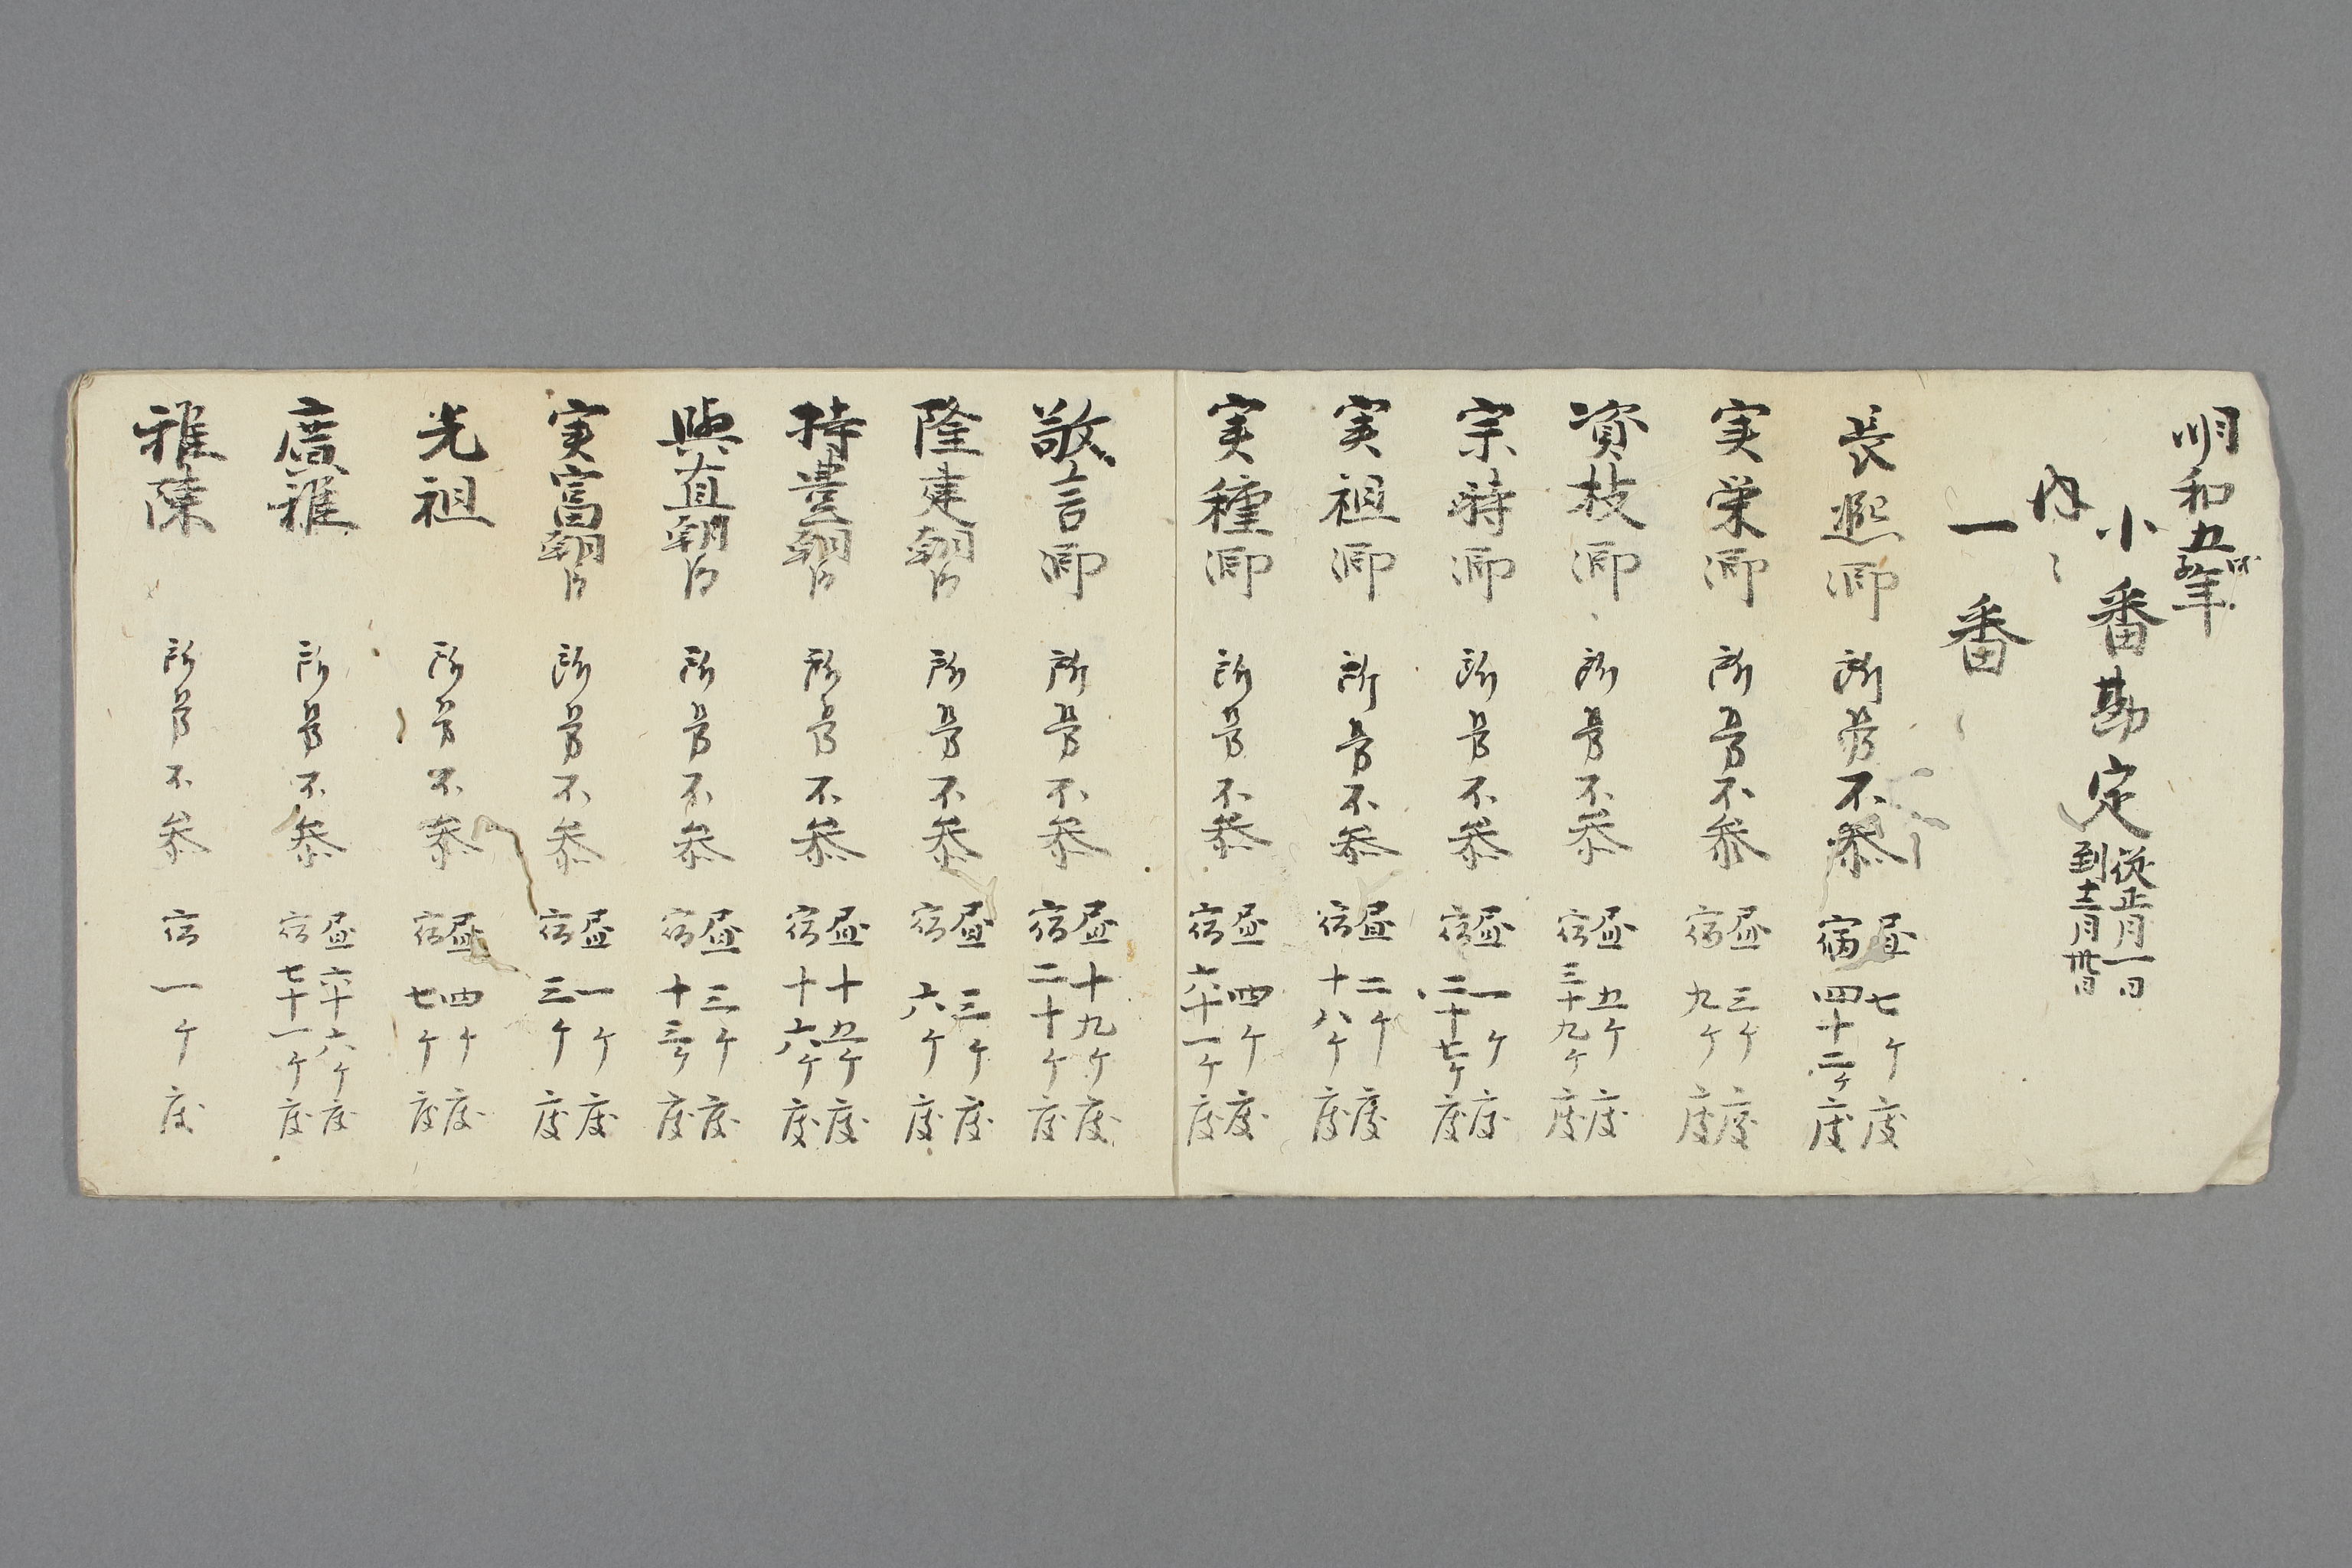 明和五年
小番勘定 従正月一日
到十二月卅日
内々
一番
長熙卿 所労不参 昼七ケ度
宿四十二ケ度
実栄卿 所労不参 昼三ケ度
宿九ケ度
資枝卿 所労不参 昼五ケ度
宿三十九ケ度
宗時卿 所労不参 昼一ケ度
宿二十七ケ度
実祖卿 所労不参 昼二ケ度
宿十八ケ度
実種卿 所労不参 昼四ケ度
宿六十一ケ度
敬言卿 所労不参 昼十九ケ度
宿二十ケ度
隆建朝臣 所労不参 昼三ケ度
宿六ケ度
持豊朝臣 所労不参 昼十五ケ度
宿十六ケ度
興直朝臣 所労不参 昼三ケ度
宿十三ケ度
実富朝臣 所労不参 昼一ケ度
宿三ケ度
光祖 所労不参 昼四ケ度
宿七ケ度
広雅 所労不参 昼六十六ケ度
宿七十一ケ度
雅陳 所労不参 宿一ケ度